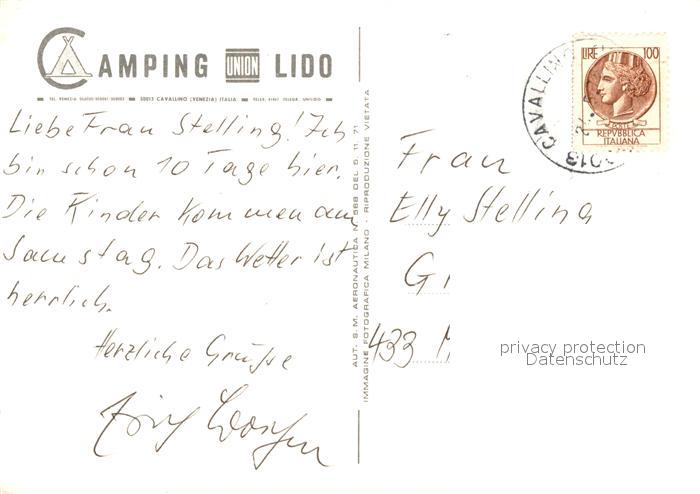 CAMPING UNION LIDO
30013 CAVALLINO (VENEZIA) ITALIA
Liebe Frau Stelling! Ich
bin schon 10 Tage hier.
Die Kinder kommen am
Samstag. Das Wetter ist
herrlich.
Herzliche Grüße
AUT. S.M. AERONAUTICA N. 568 DEL 5.11.71
IMMAGINE FOTOGRAFICA MILANO - RIPRODUZIONE VIETATA
LIRE 100
REPVBBLICA
ITALIANA
CAVALLINO
Frau
Elly Stelling
G
433 M
privacy protection
Datenschutz